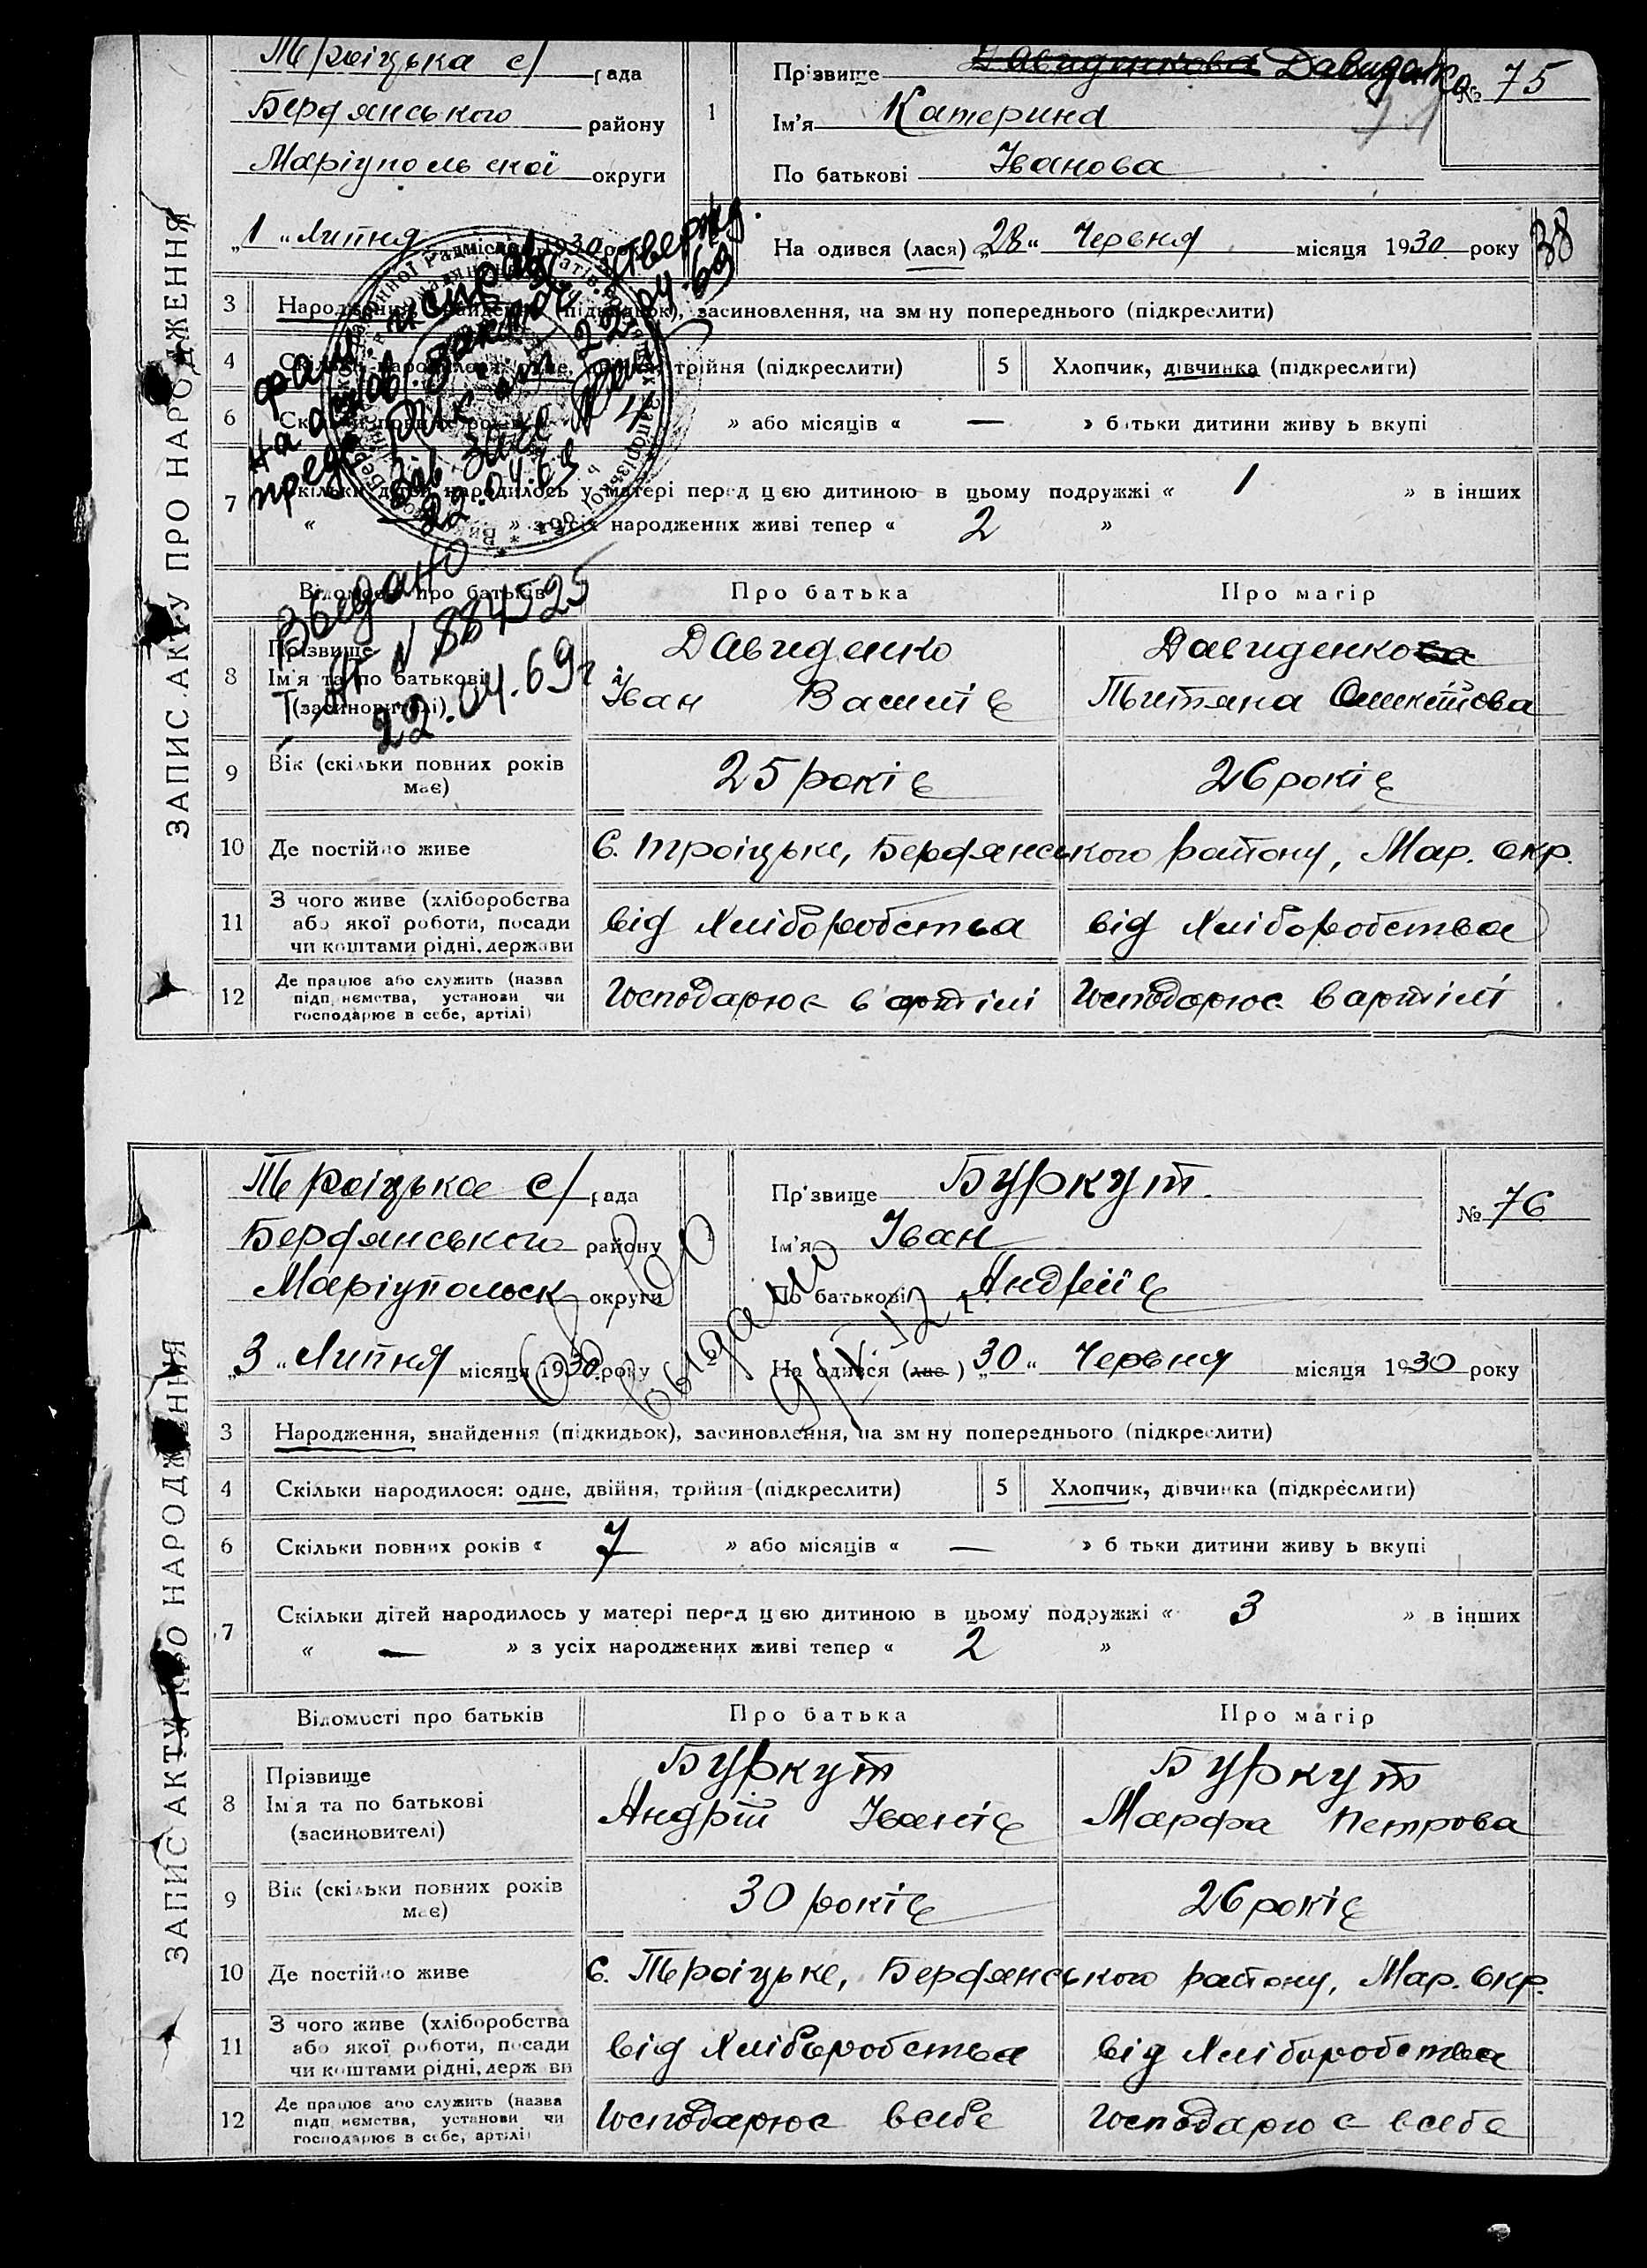 ЗАПИС АКТУ ПРО НАРОДЖЕННЯ
Троіцька с/ рада
Бердянського району
Маріупольскої округи
„1“ Липня 1930
1
Прізвище Давиденкова Давиденко
Ім'я Катерина
По батькові Іванова
№ 75
На одився (лася) „28“ Червня місяця 1930 року
38
3 Народження, (підкидьок), засиновлення, на зм ну попереднього (підкреслити)
4 Скільки народилося: одне, двійня, трійня (підкреслити)
5 Хлопчик, дівчинка (підкреслити)
6 Скільки повних років « 4 » або місяців « — » б тьки дитини живу ь вкупі
7 Скільки дітей народилось у матері перед цією дитиною в цьому подружжі « 1 » в інших
« — » з усіх народжених живі тепер « 2 »
фам. исправ.
на основ. заключ. утвержд.
пред. рик 22.04.69
Зав. Загс
22.04.69
Выдано
І-АП N 884525
22.04.69г
Відомості про батьків
Про батька
Про матір
8 Прізвище
Ім'я та по батькові
(засиновителі)
Давиденко
Іван Василів
Давиденкова
Тытяна Олексійова
9 Вік (скільки повних років має)
25 років
26 років
10 Де постійно живе
С. Троіцьке, Бердянського району, Мар. Окр.
11 З чого живе (хліборобства
або якої роботи, посади
чи коштами рідні, держави
від Хліборобства
від Хліборобства
12 Де працює або служить (назва
підп иємства, установи чи
господарює в себе, артілі)
Господарює в артілі
Господарює в артілі
ЗАПИС АКТУ ПРО НАРОДЖЕННЯ
Троіцька с/ рада
Бердянського району
Маріупольск округи
„3“ Липня місяця 1930 року
Прізвище Буркут
Ім'я Іван
По батькові Андріїв
№ 76
На одився (лас ) „30“ Червня місяця 1930 року
Выдано
3 Народження, знайдення (підкидьок), засиновлення, на зм ну попереднього (підкреслити)
4 Скільки народилося: одне, двійня, трійня (підкреслити)
5 Хлопчик, дівчинка (підкреслити)
6 Скільки повних років « 7 » або місяців « — » б тьки дитини живу ь вкупі
7 Скільки дітей народилось у матері перед цією дитиною в цьому подружжі « 3 » в інших
« — » з усіх народжених живі тепер « 2 »
Відомості про батьків
Про батька
Про матір
8 Прізвище
Ім'я та по батькові
(засиновителі)
Буркут
Андрій Іванів
Буркут
Марфа Петрова
9 Вік (скільки повних років має)
30 років
26 років
10 Де постійно живе
С. Троіцьке, Бердянського району, Мар. Окр.
11 З чого живе (хліборобства
або якої роботи, посади
чи коштами рідні, держ ви
від Хліборобства
від Хліборобства
12 Де працює або служить (назва
підп иємства, установи чи
господарює в себе, артілі)
Господарює в себе
Господарює в себе